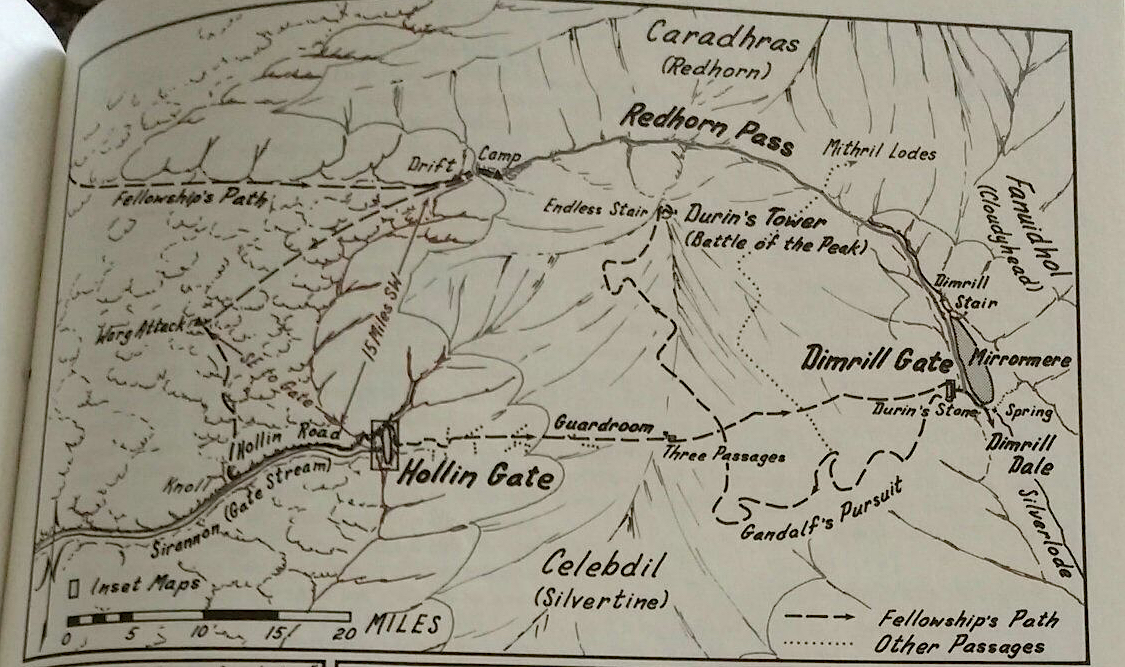 Caradhras
(Redhorn)
Redhorn Pass
Mithril Lodes
Drift
Camp
Fellowship's Path
Endless Stair
Durin's Tower
(Battle of the Peak)
Fanuidhol
(Cloudyhead)
Dimrill
Stair
15 Miles SW
Warg Attack
St. to Gate
Dimrill Gate
Mirrormere
Durin's Stone
Spring
Dimrill
Dale
Hollin Road
Guardroom
Three Passages
Knoll
Hollin Gate
Sirannon (Gate Stream)
Gandalf's Pursuit
Silverlode
Celebdil
(Silvertine)
N
Inset Maps
0 5 10 15 20 MILES
Fellowship's Path
Other Passages